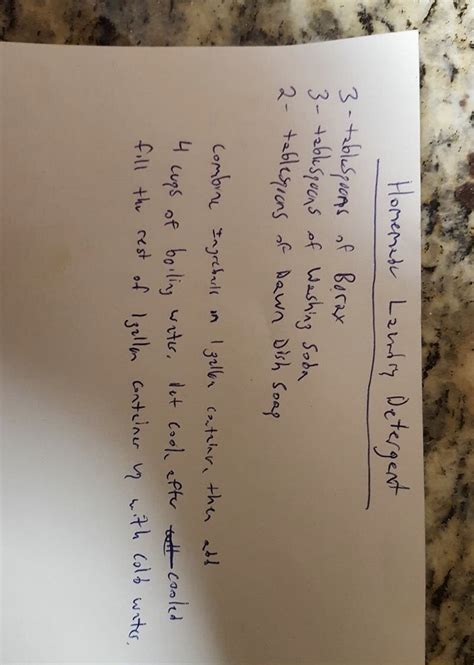 Homemade Laundry Detergent
3-tablespoons of Borax
3-tablespoons of Washing Soda
2-tablespoons of Dawn Dish Soap
Combine Ingredients in 1 gallon container, then add
4 cups of boiling water. Let cool, after cooled
fill the rest of 1 gallon container up with cold water.